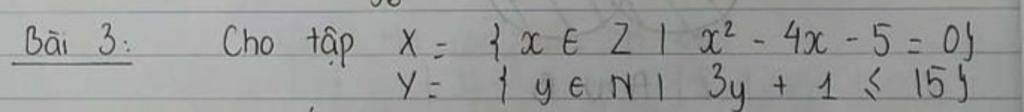 Bài 3: Cho tập X = { x ∈ Z | x² - 4x - 5 = 0}
Y = { y ∈ N | 3y + 1 ≤ 15}